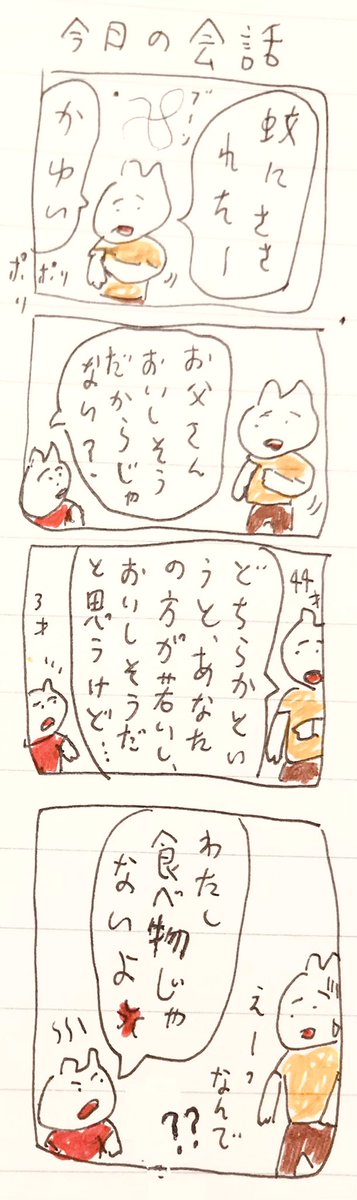 今日の会話
蚊にささ
れたー
ブーン
かゆい
ポリポリッ
お父さん
おいしそう
だからじゃ
ない？
44才
どちらかとい
うと、あなた
の方が若いし、
おいしそうだ
と思うけど…
3才
わたし
食べ物じゃ
ないよ
えーっ
なんで
??